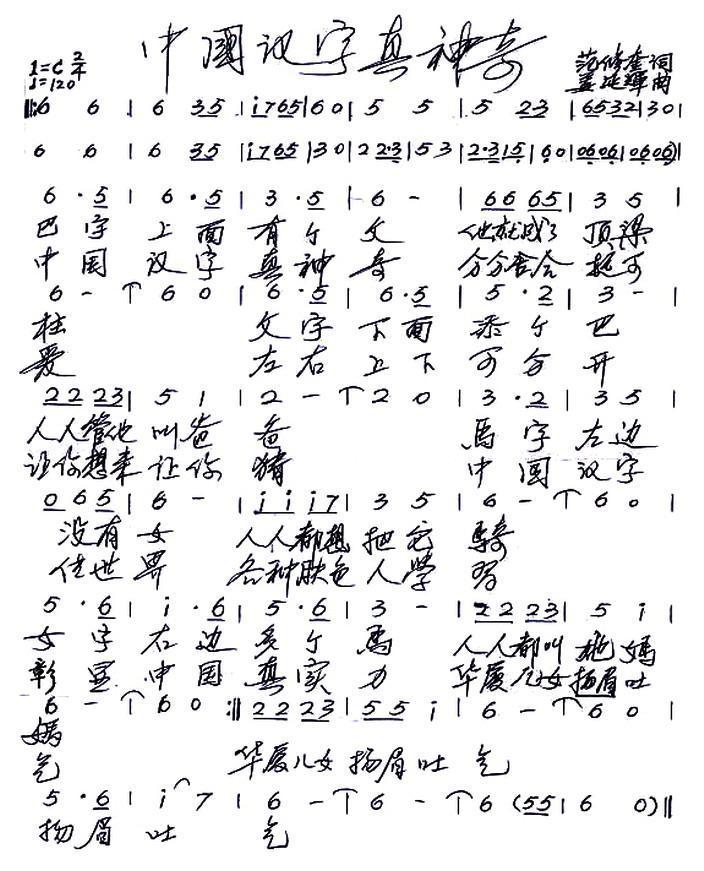 中國汉字真神奇
1=C 2/4
♩=120
范修奎词
姜延輝曲
‖: 6 6 | 6 35 | i765 | 60 | 5 5 | 5 23 | 6532 | 30 |
6 6 | 6 35 | i765 | 30 | 22·3 | 53 | 2·315 | 60 | 0606 | 0606) ‖
6 · 5 | 6 · 5 | 3 · 5 | 6 - | 66 65 | 3 5 |
巴字 上面 有个 父 他就成了 顶梁
中国 汉字 真神 奇 分分合合 挺可
6 - | 6 0 | 6 · 5 | 6 · 5 | 5 · 2 | 3 - |
柱 父字 下面 添个 巴
爱 左右 上下 可分 开
22 23 | 5 1 | 2 - | 2 0 | 3 · 2 | 3 5 |
人人管他 叫爸 爸 馬字 左边
让你想来 让你 猜 中国 汉字
0 6 5 | 6 - | i i i7 | 3 5 | 6 - | 6 0 |
没有 女 人人都想 把它 騎
传世 界 各种肤色 人學 习
5 · 6 | i · 6 | 5 · 6 | 3 - | 22 23 | 5 i |
女字 右边 多个 馬 人人都叫 她媽
彰显 中国 真实 力 华夏儿女 扬眉吐
6 - | 6 0 :‖ 22 23 | 55 i | 6 - | 6 0 |
媽
气 华夏儿女 扬眉吐 气
5 · 6 | i 7 | 6 - | 6 - | 6 (55 | 6 0) ‖
扬眉 吐 气